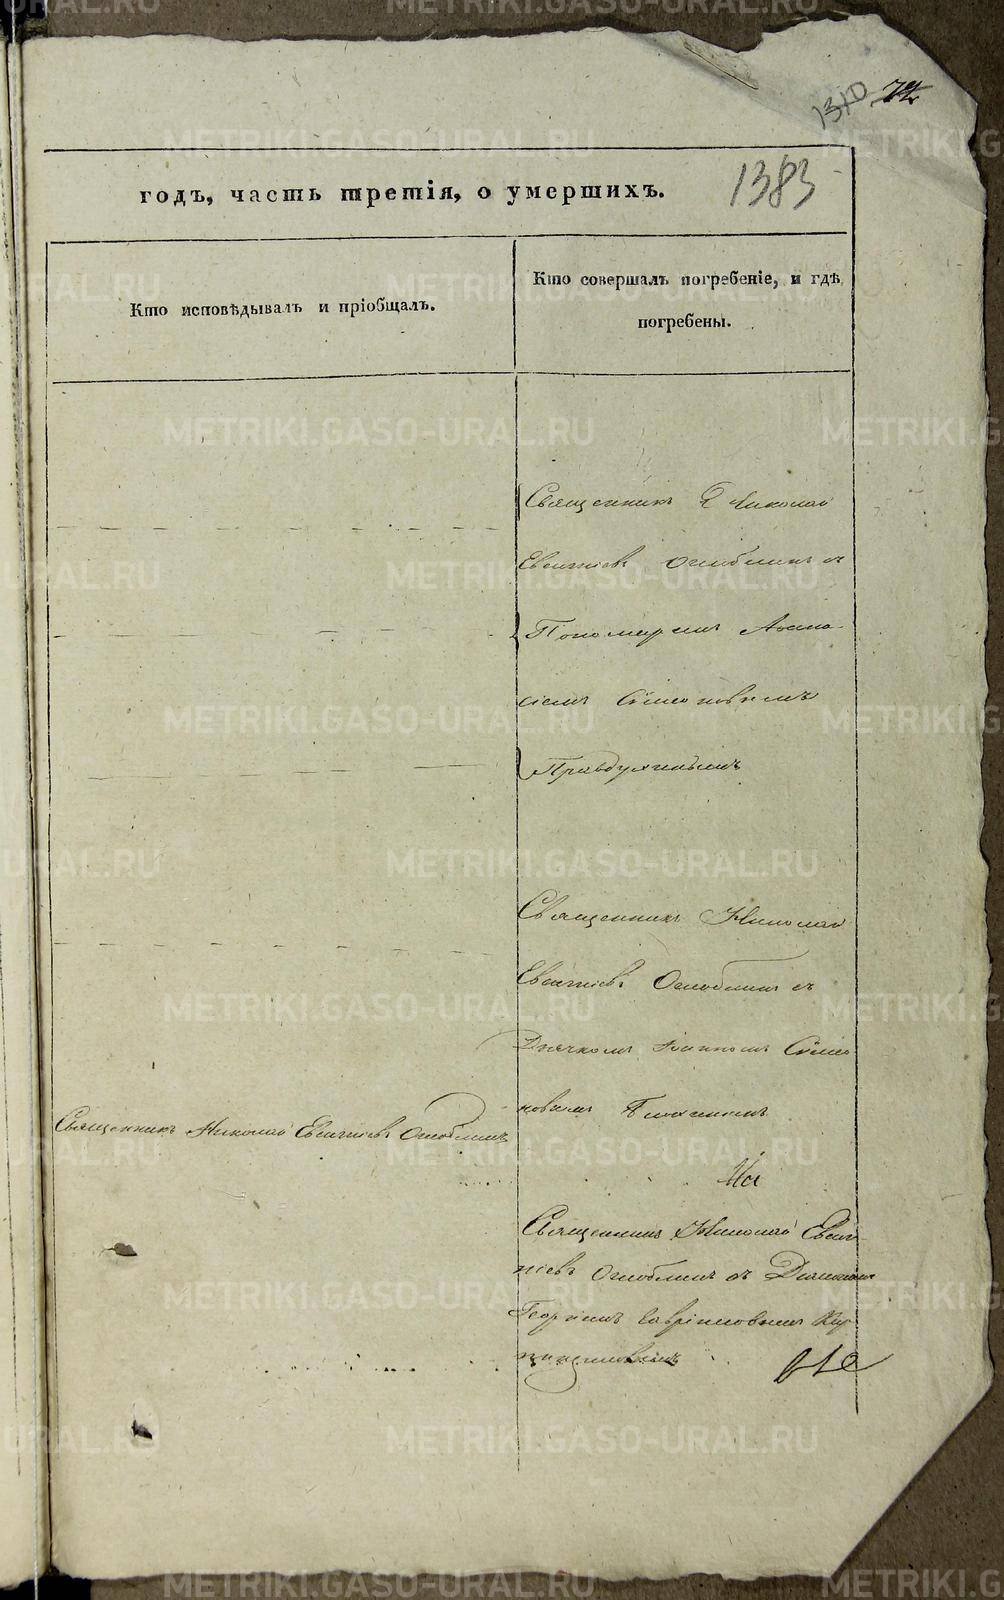 1310 72
годъ, часть третія, о умершихъ. 1383
Кто исповѣдывалъ и пріобщалъ.
Кто совершалъ погребеніе, и гдѣ
погребены.
Священникъ Николай
Евсигніевъ Оглоблинъ съ
Пономаремъ Аѳана-
сіемъ Сѵмеоновымъ
Правдухинымъ
Священникъ Николай
Евсигніевъ Оглоблинъ съ
Дьячкомъ Іоанномъ Сѵмео
новымъ
Священникъ Николай Евсигніевъ Оглоблинъ
Священникъ Николай Евсиг-
ніевъ Оглоблинъ съ Діакономъ
Георгіемъ Гавріиловымъ
METRIKI.GASO-URAL.RU